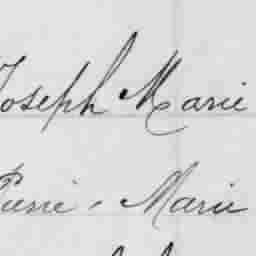 Joseph Marie
Pierre - Marie